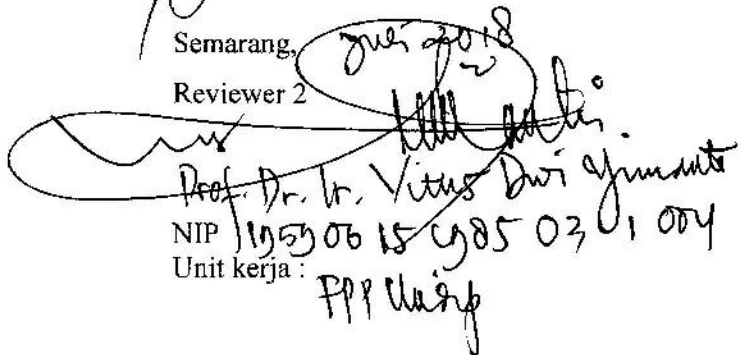 Semarang, Juli 2018
Reviewer 2
Prof. Dr. Ir. Vitus Dwi Yunianto
NIP 19590615 1985 03 1 004
Unit kerja :
FPP Undip